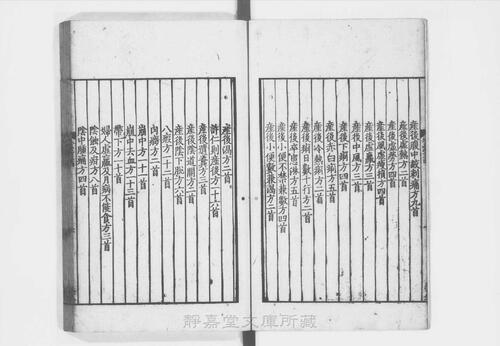 産後腹中䟽刺痛方九首
産後虛熱方二首
産後虛勞方四首
産後風虛瘦損方四首
産後虛羸方三首
産後中風方三首
産後下痢方四首
産後赤白痢方五首
産後冷熱痢方二首
産後痢日數十行方二首
産後卒患淋方五首
産後小便不禁兼數方四首
産後小便數兼渴方二首
産後渴方二首
許仁則産後方一十六首
産後遺糞方三首
産後陰道開方二首
産後陰下脫方六首
八瘕方一十二首
崩中方一十一首
崩中去血方一十三首
帶下方一十首
婦人虛羸及月病不能食方三首
陰蝕及疳方八首
靜嘉堂文庫所藏